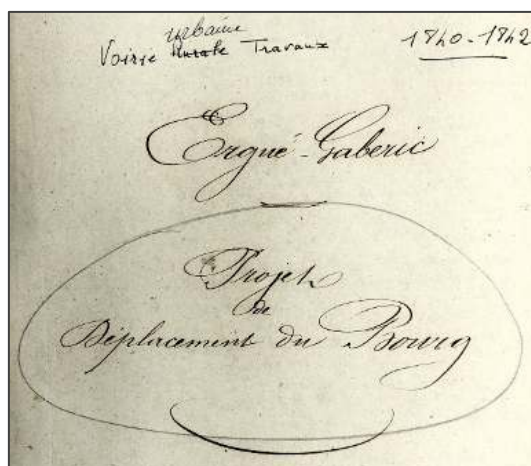 urbaine
Voirie Rurale Travaux 1840-1842
Ergué-Gaberic
Projet
de
Déplacement du Bourg